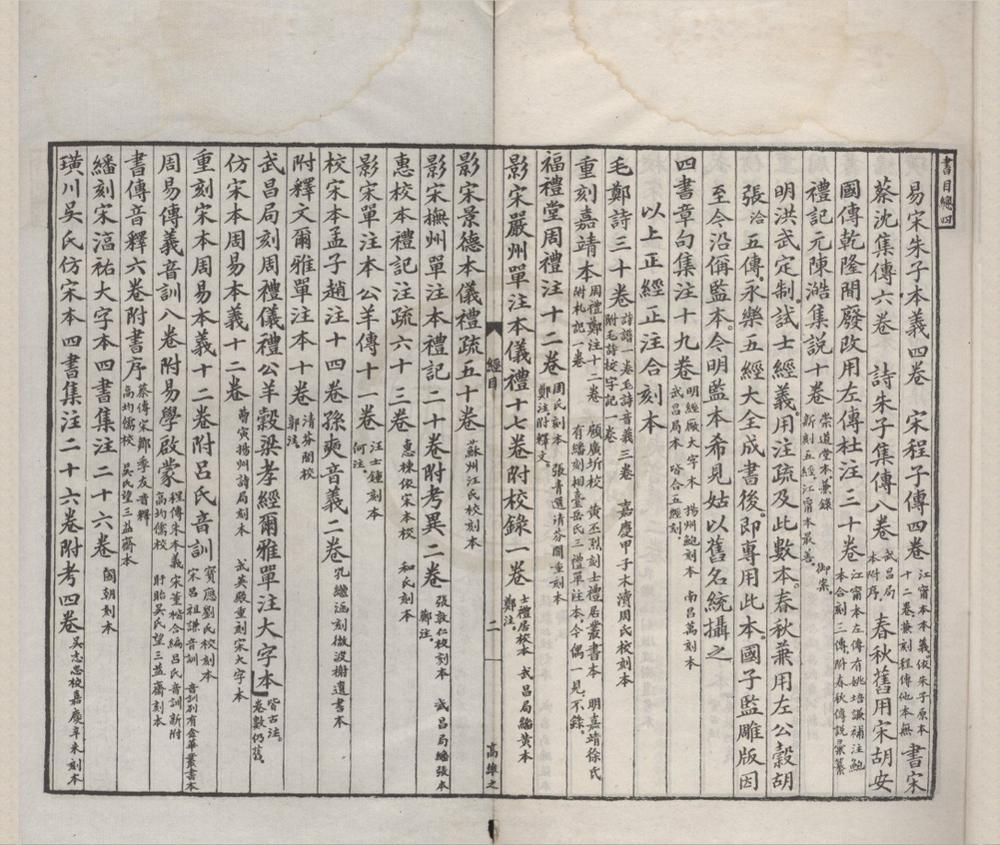 書目總四
易宋朱子本義四卷　宋程子傳四卷 江甯本本義依朱子原本十二卷兼刻程傳他本無 書宋
蔡沈集傳六卷　詩朱子集傳八卷 武昌局本附序 春秋舊用宋胡安
國傳乾隆間廢改用左傳杜注三十卷 江甯本左傳有姚培謙補注鮑本合刻三傳附春秋傳說彙纂
禮記元陳澔集說十卷 崇道堂本兼錄御案新刻五經江甯本最善
明洪武定制試士經義用注疏及此數本春秋兼用左公穀胡
張洽五傳永樂五經大全成書後即專用此本國子監雕版因
至今沿稱監本今明監本希見姑以舊名統攝之
四書章句集注十九卷 明經厰大字本　揚州鮑刻本　南昌萬刻本　武昌局本　啥合五經刻
以上正經正注合刻本
毛鄭詩三十卷 詩譜一卷毛詩音義三卷附毛詩校字記　卷　嘉慶甲子木瀆周氏校刻本
重刻嘉靖本 周禮鄭注十二卷附札記一卷　顧廣圻校　黃丕烈刻士禮居叢書本　明嘉靖徐氏有繙刻相臺岳氏三禮單注本今偶一見不錄
福禮堂周禮注十二卷 周氏刻本　張青選清芬閣重刻本　鄭注附釋文
影宋嚴州單注本儀禮十七卷附校錄一卷 士禮居校本　武昌局繙黃本　鄭注
經目
二
高集之
影宋景德本儀禮疏五十卷 蘇州汪氏校刻本
影宋撫州單注本禮記二十卷附考異二卷 張敦仁校刻本　武昌局繙張本　鄭注
惠校本禮記注疏六十三卷 惠棟依宋本校　和氏刻本
影宋單注本公羊傳十一卷 汪士鐘刻本　何注
校宋本孟子趙注十四卷孫奭音義二卷 孔繼涵刻微波榭遺書本
附釋文爾雅單注本十卷 清芬閣校　郭注
武昌局刻周禮儀禮公羊穀梁孝經爾雅單注大字本 皆古注卷數仍舊
仿宋本周易本義十二卷 曹寅揚州詩局刻本　武英殿重刻宋大字本
重刻宋本周易本義十二卷附呂氏音訓 寶應劉氏校刻本　宋呂祖謙音訓　音訓別有金華叢書本
周易傳義音訓八卷附易學啟蒙 程傳朱本義　宋董楷合編呂氏音訓新附　高均儒校　盱眙吳氏望三益齋刻本
書傳音釋六卷附書序 蔡傳宋鄒季友音釋　高均儒校　吳氏望三益齋本
繙刻宋淳祐大字本四書集注二十六卷 國朝刻本
璜川吳氏仿宋本四書集注二十六卷附考四卷 吳志忠校嘉慶辛未刻本